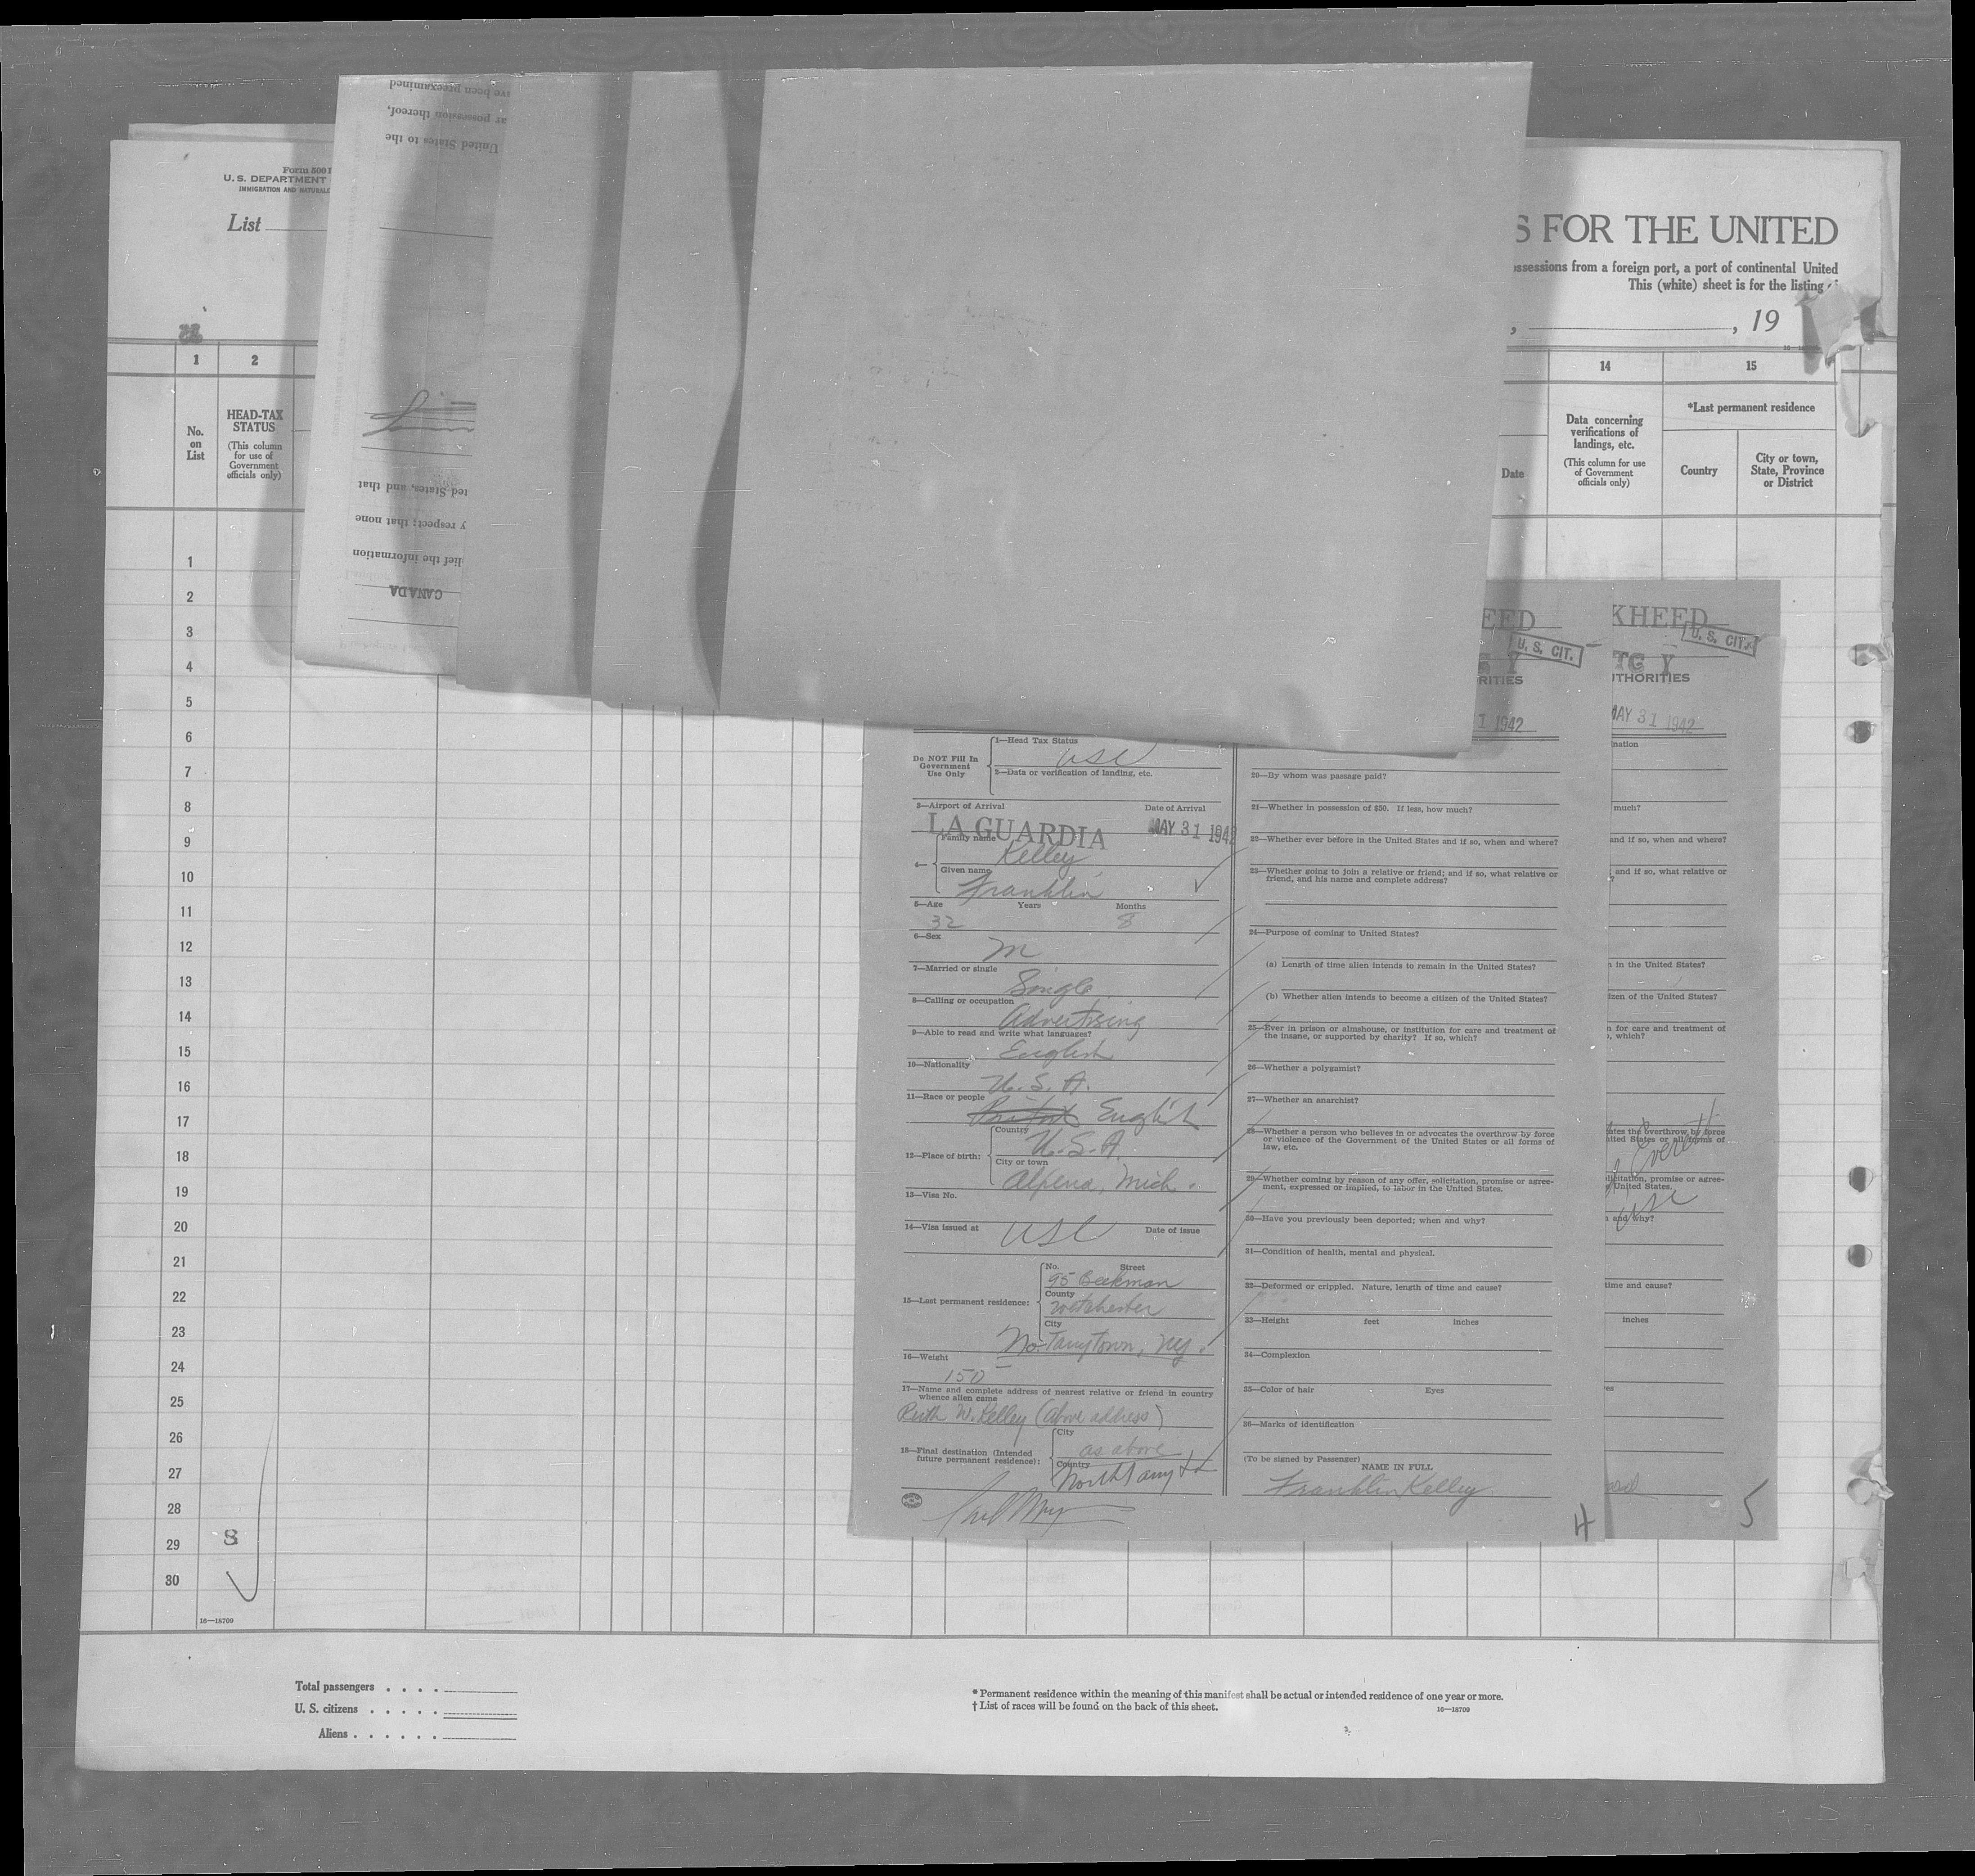 ve been preexamined
ar possession thereof,
United States to the
ted States, and that
y respect; that none
lief the information
CANADA
Form 500
U. S. DEPARTMENT
IMMIGRATION AND NATURALI
List
S FOR THE UNITED
ossessions from a foreign port, a port of continental United
This (white) sheet is for the listing
, , 19
1 2 14 15
No. on List
HEAD-TAX STATUS
(This column for use of Government officials only)
Date
Data concerning verifications of landings, etc.
(This column for use of Government officials only)
*Last permanent residence
Country
City or town, State, Province or District
1
2
3
4
5
6
7
8
9
10
11
12
13
14
15
16
17
18
19
20
21
22
23
24
25
26
27
28
29
30
8
16—18709
EED
U. S. CIT.
Y
RITIES
1 1942
Do NOT Fill In Government Use Only
1—Head Tax Status
USC
2—Data or verification of landing, etc.
3—Airport of Arrival Date of Arrival
LA GUARDIA MAY 31 1942
4—
Family name
Kelley
Given name
Franklin
5—Age Years Months
32 8
6—Sex
M
7—Married or single
Single
8—Calling or occupation
Advertising
9—Able to read and write what languages?
English
10—Nationality
U. S. A.
11—Race or people
English
12—Place of birth:
Country
U. S. A.
City or town
Alpena, Mich.
13—Visa No.
14—Visa issued at Date of issue
USC
15—Last permanent residence:
No. Street
95 Beekman
County
Westchester
City
No. Tarrytown, NY.
16—Weight
150
17—Name and complete address of nearest relative or friend in country
whence alien came
Ruth W. Kelley (above address)
18—Final destination (Intended
future permanent residence):
City
as above
Country
North Tarry
20—By whom was passage paid?
21—Whether in possession of $50. If less, how much?
22—Whether ever before in the United States and if so, when and where?
23—Whether going to join a relative or friend; and if so, what relative or
friend, and his name and complete address?
24—Purpose of coming to United States?
(a) Length of time alien intends to remain in the United States?
(b) Whether alien intends to become a citizen of the United States?
25—Ever in prison or almshouse, or institution for care and treatment of
the insane, or supported by charity? If so, which?
26—Whether a polygamist?
27—Whether an anarchist?
28—Whether a person who believes in or advocates the overthrow by force
or violence of the Government of the United States or all forms of
law, etc.
29—Whether coming by reason of any offer, solicitation, promise or agree-
ment, expressed or implied, to labor in the United States.
30—Have you previously been deported; when and why?
31—Condition of health, mental and physical.
32—Deformed or crippled. Nature, length of time and cause?
33—Height feet inches
34—Complexion
35—Color of hair Eyes
36—Marks of identification
(To be signed by Passenger)
NAME IN FULL
Franklin Kelley
4
KHEED
U. S. CIT.
TG Y
UTHORITIES
MAY 31 1942
nation
much?
and if so, when and where?
, and if so, what relative or
?
n in the United States?
izen of the United States?
n for care and treatment of
, which?
ates the overthrow by force
nited States or all forms of
Everett
licitation, promise or agree-
United States.
USC
n and why?
time and cause?
inches
yes
5
Total passengers . . . .
U. S. citizens . . . . .
Aliens . . . . . .
* Permanent residence within the meaning of this manifest shall be actual or intended residence of one year or more.
† List of races will be found on the back of this sheet.
16—18709